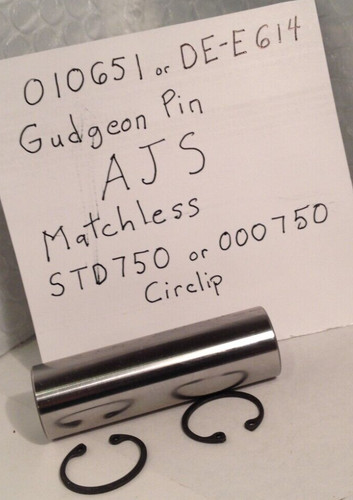 010651 or DE-E614
Gudgeon Pin
AJS
Matchless
STD750 or 000750
Circlip